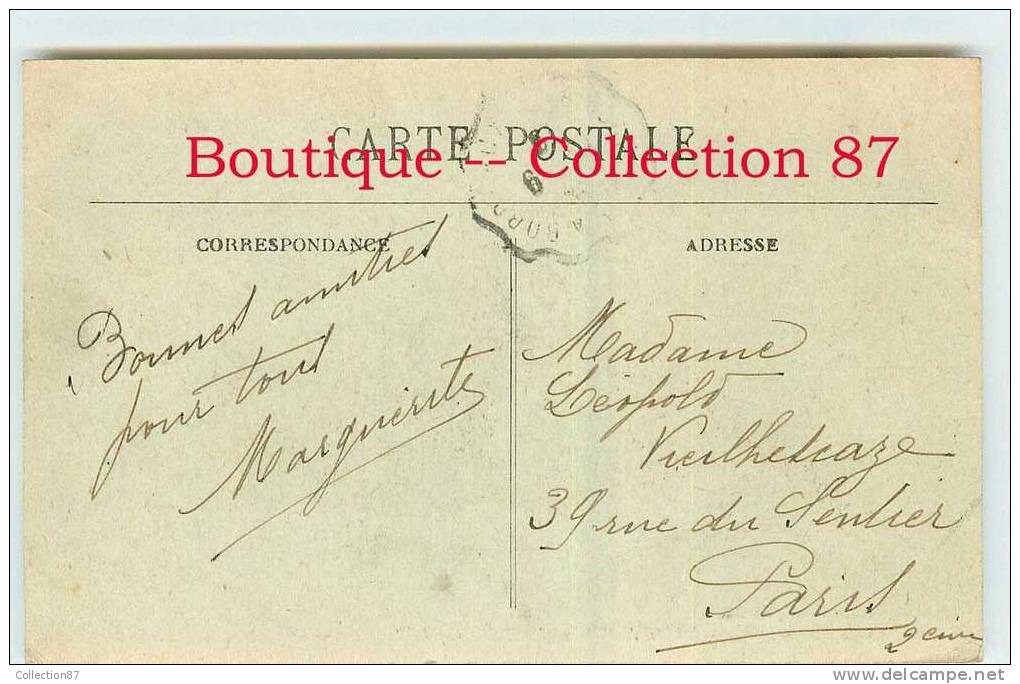 CARTE POSTALE
Boutique -- Collection 87
CORRESPONDANCE
Bonnes amitiés
pour tous
Marguerite
ADRESSE
Madame
Léopold
Vieilhescaze
39 rue du Sentier
Paris
2eme
Collection87
www.delcampe.net